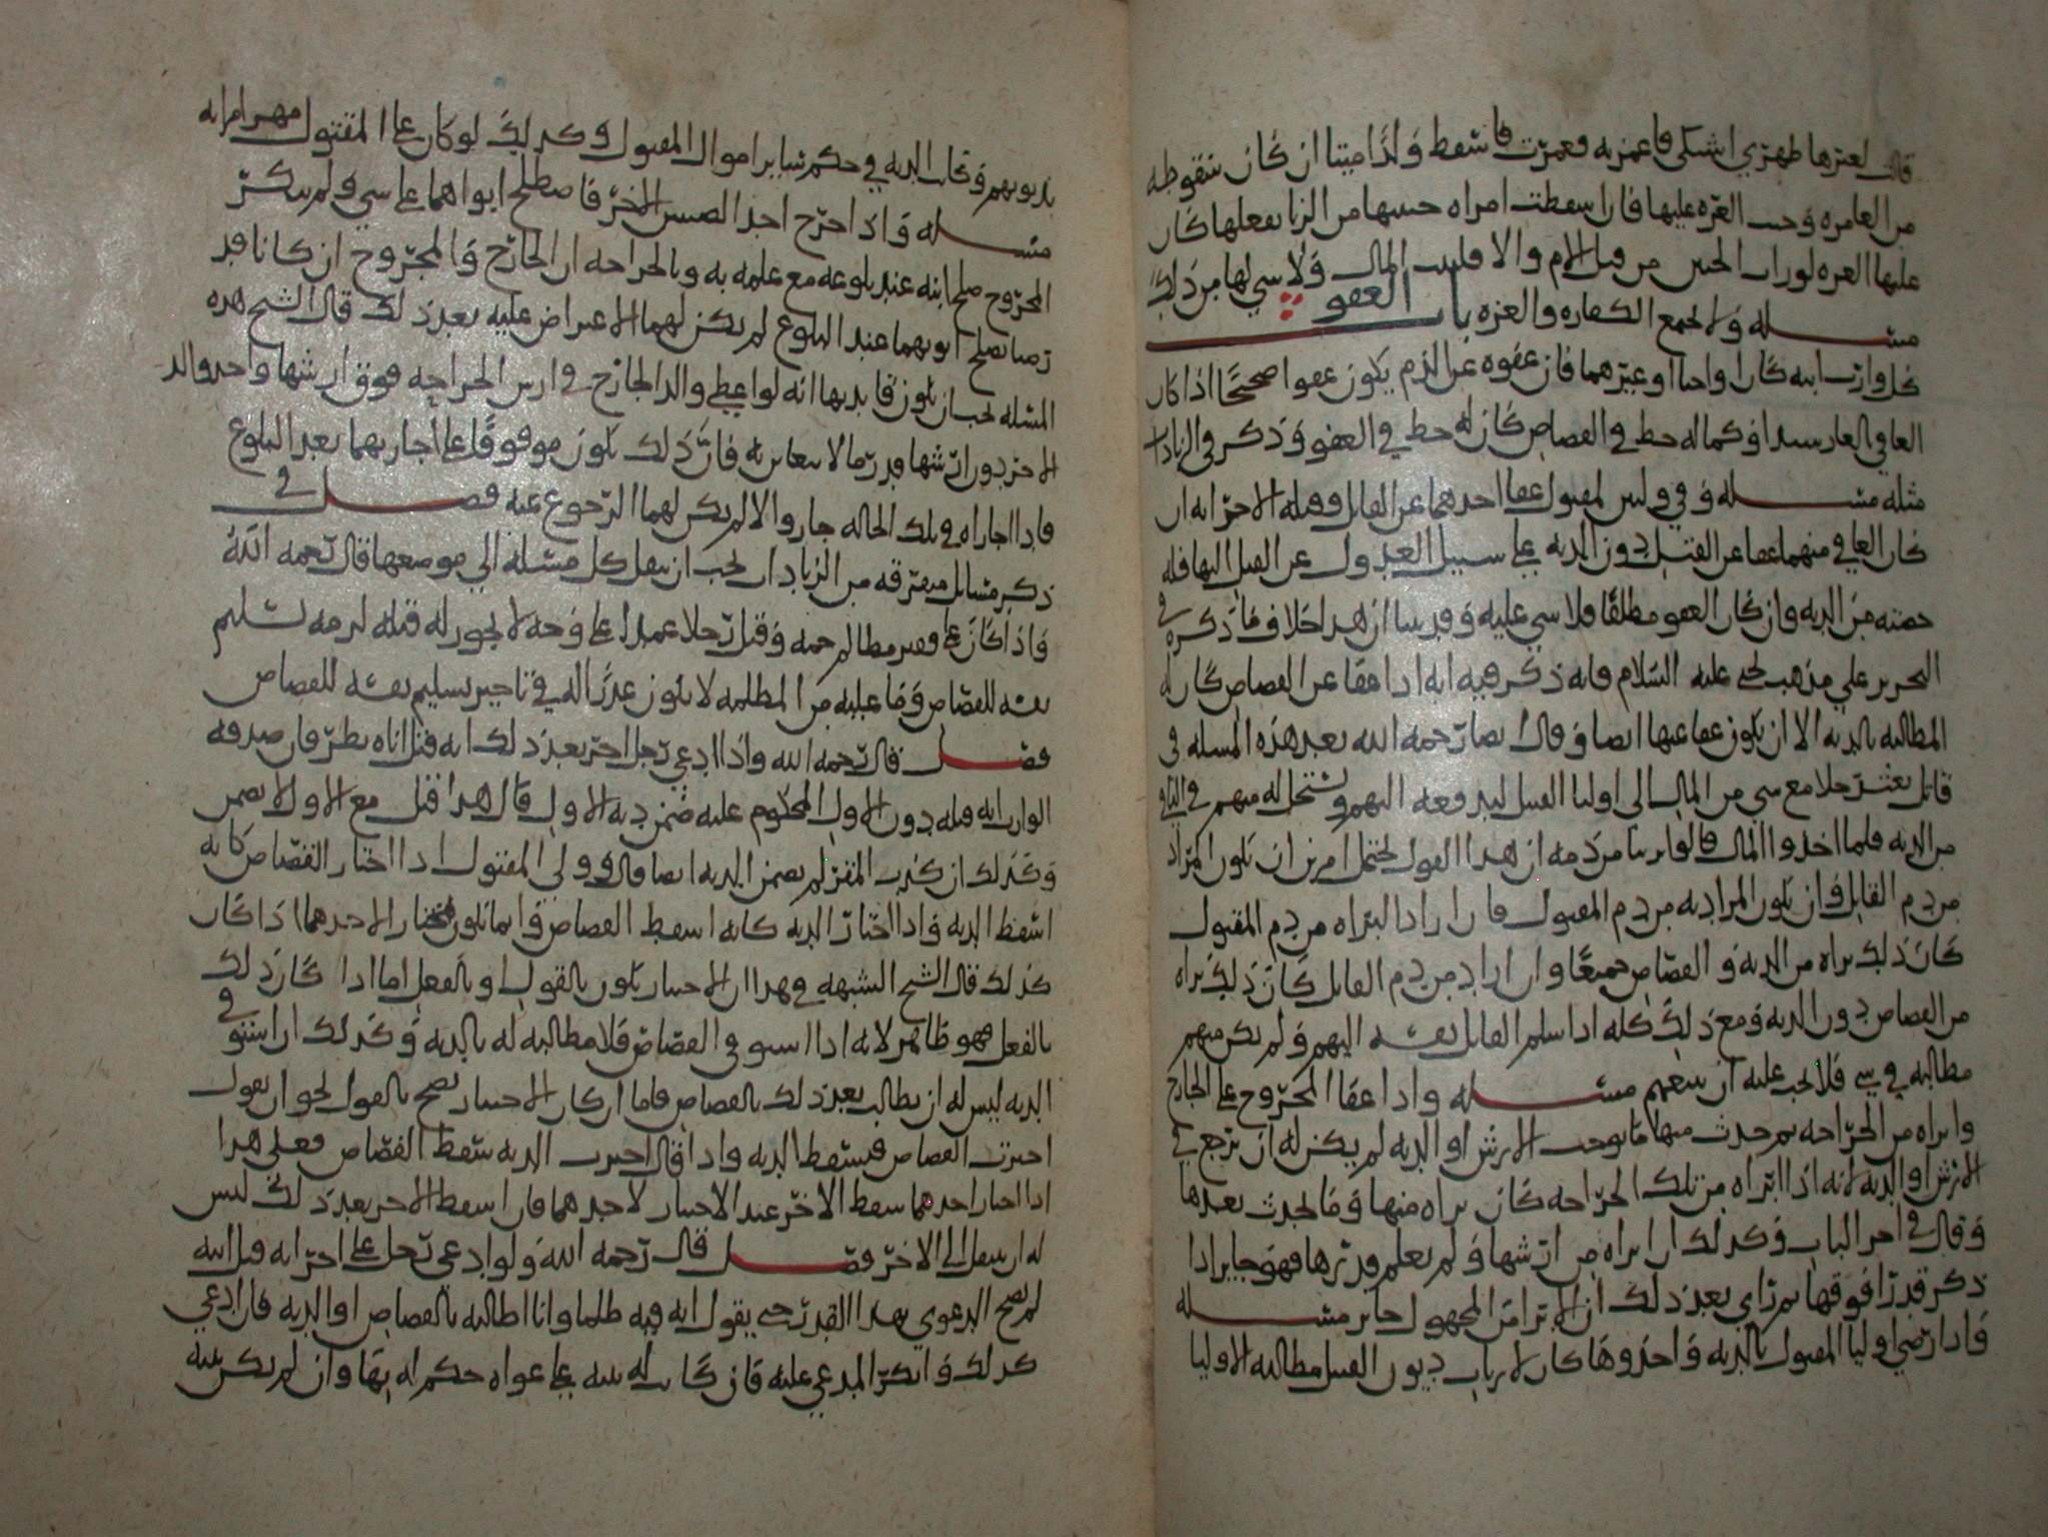 قال لغيرها ظهري اشتكى فاغمزيه فغمزت فاسقطت ولدا ميتا ان كان سقوطه
من الغامزه وجبت الغره عليها فان اسقطت امراه جنينها من الزنا بفعلها كان
عليها الغره لوراث الجنين من قبل الام والا فلبيت المال ولا شي لها من ذلك
مسله ولا تجتمع الكفاره والغره باب العفو
كل وارث ابنه كان او اخا او غيرهما فان عفوه عن الدم يكون عفوا صحيحا اذا كان
العافي بالغا رشيدا وكما له حظ في القصاص كان له حظ في العفو وذكر في الزيادات
مثله مسله وفي وليين لمقتول عفا احدهما عن القاتل وقتله الاخر انه ان
كان العافي منهما عفا عن القتل دون الديه على سبيل العدول عن القتل اليها فله
حصته من الديه وان كان العفو مطلقا فلا شي عليه وقد بينا ان هذا خلاف ما ذكره في
التحرير على مذهب يحيى عليه السلام فانه ذكر فيه انه اذا عفا عن القصاص كان له
المطالبه بالديه الا ان يكون عفا عنها ايضا وقال ايضا رحمه الله بعد هذه المسله في
قاتل بعث رجلا مع شي من المال الى اوليا القتيل ليدفعه اليهم ويستحل له منهم في الباقي
من الديه فلما اخذوا المال قالوا برينا من دمه ان هذا القول يحتمل امرين ان يكون المراد
من دم القاتل وان يكون المراد به من دم المقتول فان ارادا البراه من دم المقتول
كان ذلك براه من الديه والقصاص جميعا وان اراد من دم القاتل كان ذلك براه
من القصاص دون الديه ومع ذلك كله اذا سلم القاتل نفسه اليهم ولم يكن منهم
مطالبه في شي فلا يجب عليه ان يتبعهم مسله واذا عفا المجروح على الجارح
وابراه من الجراحه ثم حدث منها ما يوجب الارش او الديه لم يكن له ان يرجع في
الارش او الديه لانه اذا ابراه من تلك الجراحه كان براه منها وما يحدث بعدها
وقال في اخر الباب وكذلك ان ابراه من ارشها ولم يعلم قدرها فهو جايز اذا
ذكر قدرا فوقها ثم راى بعد ذلك ان الابرا من المجهول جايز مسله
واذا رضي اوليا المقتول بالديه واخذوها كان لارباب ديون القتيل مطالبه الاوليا
بديونهم وكانت الديه في حكم ساير اموال المقتول وكذلك لو كان على المقتول مهر امراته
مسله واذا جرح احد الصبيين الاخر فاصطلح ابواهما على شي ولم ينكر
المجروح صلح ابنه عند بلوغه مع علمه به وبالجراحه ان الجارح والمجروح ان كانا قد
رضيا بصلح ابويهما عند البلوغ لم يكن لهما الاعتراض عليه بعد ذلك قال الشيخ هذه
المسله يجب ان يكون فايدتها انه لو اعطى والد الجارح في ارش الجراحه فوق ارشها واخد والد
الاخر دون ارشها قدر ما لا يتغابن به فان ذلك يكون موقوفا على اجازتهما بعد البلوغ
فاذا اجازاه في تلك الحاله جاز والا لم يكن لهما الرجوع عنه فصل في
ذكر مسايل متفرقه من الزيادات يجب ان ينقل كل مسله الى موضعها قال رحمه الله
واذا كان على فقير مظالم جمه وقتل رجلا عمدا على وجه لا يجوز له قتله لزمه تسليم
نفسه للقصاص وما عليه من المظلمه لا يكون عذرا له في تاخير تسليم نفسه للقصاص
فصل قال رحمه الله واذا ادعى رجل اخر بعد ذلك انه قتل اباه نظر فان صدقه
الوارث انه قتله دون الاول المحكوم عليه ضمن ديه الاول وان قال هذا قتل مع الاول لا يضمن
وكذلك ان كذب المقر لم يضمن الديه ايضا قال وولي المقتول اذا اختار القصاص كانه
اسقط الديه واذا اختار الديه كانه اسقط القصاص وانما يكون مختارا لاحدهما اذا كان
كذلك قال الشيخ الشبهه في هذا ان الاختيار يكون بالقول او بالفعل اما اذا كان ذلك
بالفعل فهو ظاهر لانه اذا استوفى القصاص فلا مطالبه له بالديه وكذلك ان استوفى
الديه ليس له ان يطالب بعد ذلك بالقصاص فاما ان كان الاختيار يصح بالقول نحو ان يقول
اخترت القصاص فيسقط الديه واذا قال اخترت الديه سقط القصاص فعلى هذا
اذا اختار احدهما سقط الاخر عند الاختيار لاحدهما فان اسقط الاخر بعد ذلك ليس
له ان ينتقل الى الاخر فصل قال رحمه الله ولو ادعى رجل على اخر انه قتل ابنه
لم تصح الدعوى بهذا القدر حتى يقول انه قتله ظلما وانا اطالبه بالقصاص او الديه فان ادعى
كذلك وانكر المدعى عليه فان كانت له بينه على دعواه حكم له بها وان لم يكن بينه